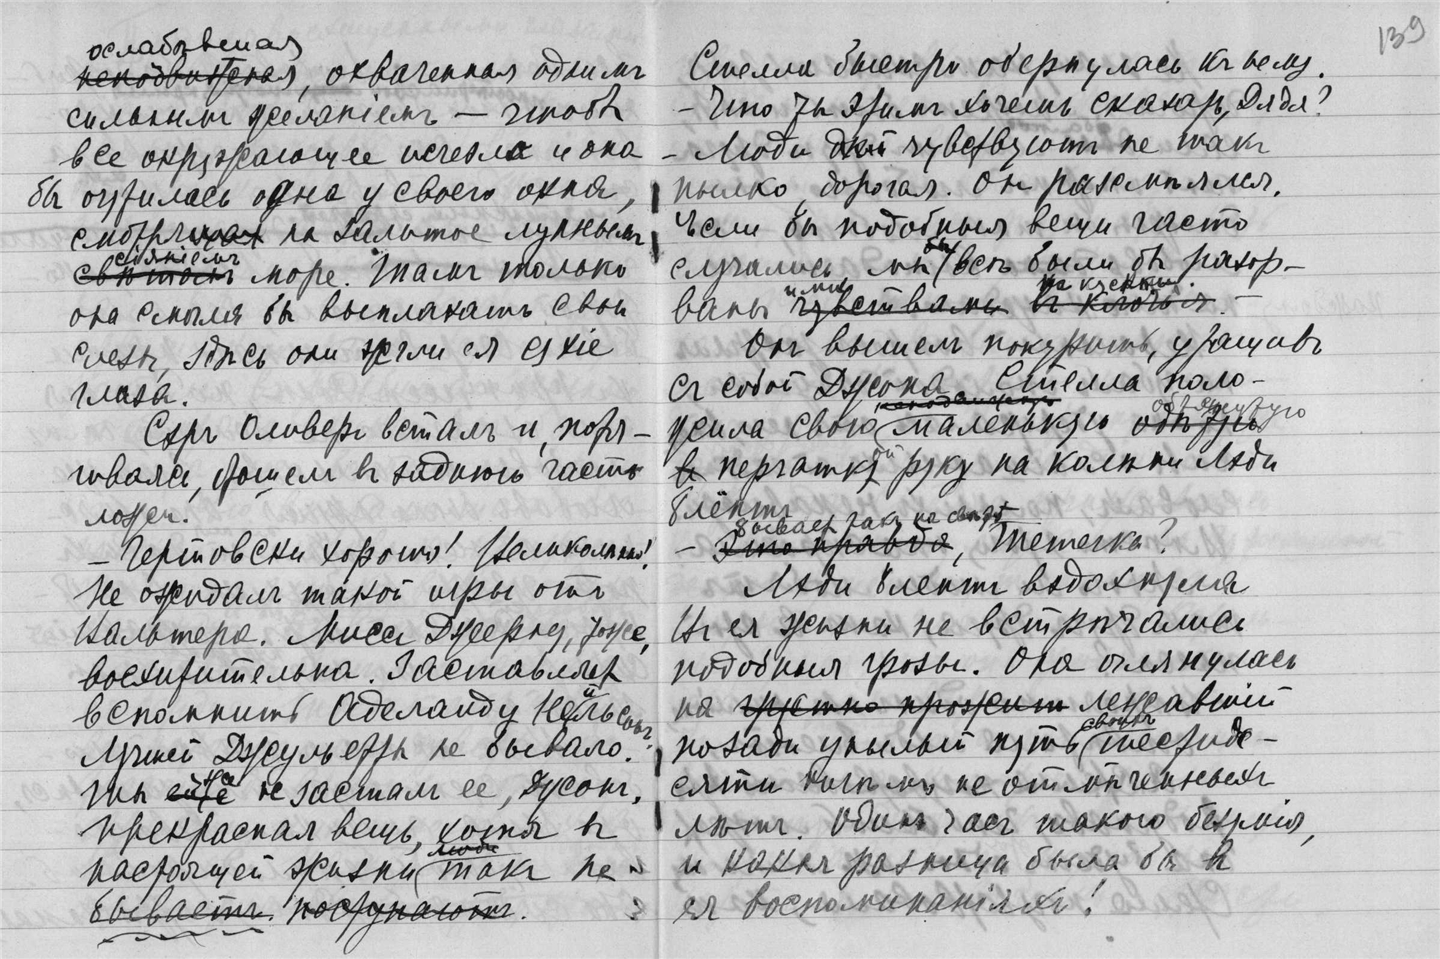 ослабѣвшая
неподвижная, охваченная однимъ
сильнымъ желаніемъ – чтобы
все окружающее исчезло и она
бы очутилась одна у своего окна,
смотрящая на залитое луннымъ
сіяніемъ
свѣтомъ море. Тамъ только
она смѣла бы выплакать свои
слезы, здѣсь они жгли ея сухіе
глаза.
Сэръ Оливеръ всталъ и, потя-
гиваясь, пошелъ въ заднюю часть
ложи.
– Чертовски хорошо! Великолѣпно!
Не ожидалъ такой игры отъ
Вальтера. Миссъ Джерид, тоже,
восхитительна. Заставляетъ
вспомнить Аделаиду Нейльсонъ.
Лучшей Джульеты не бывало.
Ты не засталъ ее, Джонъ.
Прекрасная вещь, хотя въ
люди
настоящей жизни такъ не
бываетъ поступаютъ.
139
Стелла быстро обернулась къ нему.
– Что ты этимъ хочешь сказать, Дядя?
– Люди чувствуютъ не такъ
пылко, дорогая. Он разсмѣялся.
Если бы подобныя вещи часто
случались, мы бы всѣ были бы разор-
ими на клочки.
ваны чувствами въ клочья –
Онъ вышелъ покурить, утащивъ
съ собой Джона. Стелла поло-
жила свою маленькую обтянутую
въ перчаткой руку на колѣни Лэди
Блентъ
бываетъ такъ на свѣтѣ
– Это правда, Тетечка?
Лэди Блентъ вздохнула
Въ ея жизни не встрѣчались
подобныя грозы. Она оглянулась
на грустно прожит лежавшій
своихъ
позади унылый путь шестиде-
сяти ничѣмъ не отмѣченныхъ
лѣтъ. Одинъ часъ такого безумія,
и какая разница была бы въ
ея воспоминаніяхъ!